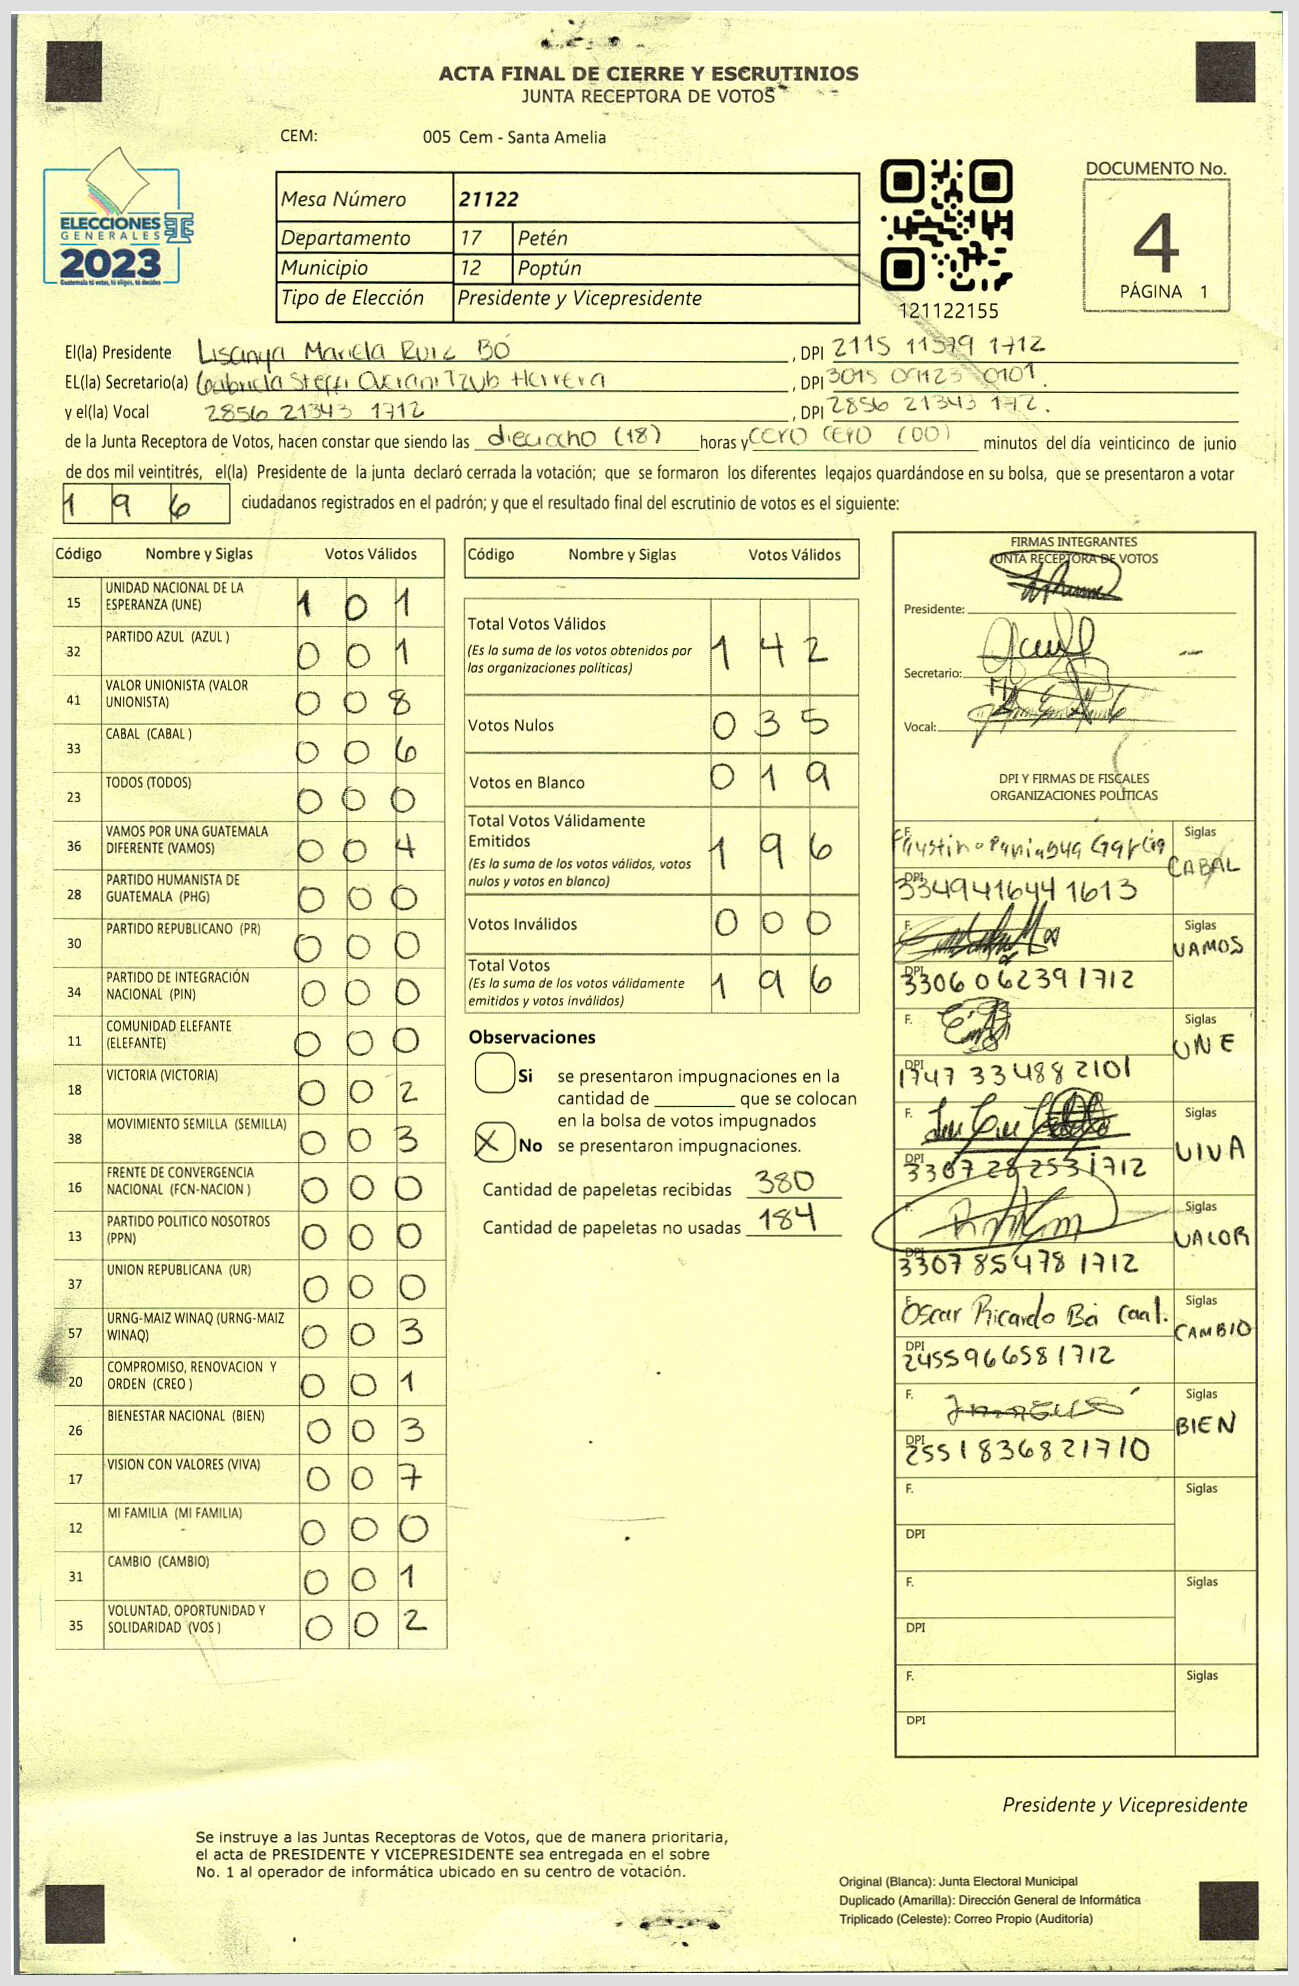 ACTA FINAL DE CIERRE Y ESCRUTINIOS
JUNTA RECEPTORA DE VOTOS
CEM: 005 Cem - Santa Amelia
ELECCIONES
GENERALES
2023
Guatemala tú votas, tú eliges, tú decides
Mesa Número 21122
Departamento 17 Petén
Municipio 12 Poptún
Tipo de Elección Presidente y Vicepresidente
121122155
DOCUMENTO No.
4
PÁGINA 1
El(la) Presidente Lisanya Mariela Ruiz Bó , DPI 2115 11579 1712
EL(la) Secretario(a) Gabriela Steffi Tzub Herrera , DPI 3015 09123 0101.
y el(la) Vocal 2856 21343 1712 , DPI 2856 21343 172.
de la Junta Receptora de Votos, hacen constar que siendo las dieciocho (18) horas y cero cero (00) minutos del día veinticinco de junio
de dos mil veintitrés, el(la) Presidente de la junta declaró cerrada la votación; que se formaron los diferentes legajos guardándose en su bolsa, que se presentaron a votar
196 ciudadanos registrados en el padrón; y que el resultado final del escrutinio de votos es el siguiente:
Código Nombre y Siglas Votos Válidos
15 UNIDAD NACIONAL DE LA ESPERANZA (UNE) 1 0 1
32 PARTIDO AZUL (AZUL ) 0 0 1
41 VALOR UNIONISTA (VALOR UNIONISTA) 0 0 8
33 CABAL (CABAL ) 0 0 6
23 TODOS (TODOS) 0 0 0
36 VAMOS POR UNA GUATEMALA DIFERENTE (VAMOS) 0 0 4
28 PARTIDO HUMANISTA DE GUATEMALA (PHG) 0 0 0
30 PARTIDO REPUBLICANO (PR) 0 0 0
34 PARTIDO DE INTEGRACIÓN NACIONAL (PIN) 0 0 0
11 COMUNIDAD ELEFANTE (ELEFANTE) 0 0 0
18 VICTORIA (VICTORIA) 0 0 2
38 MOVIMIENTO SEMILLA (SEMILLA) 0 0 3
16 FRENTE DE CONVERGENCIA NACIONAL (FCN-NACION ) 0 0 0
13 PARTIDO POLITICO NOSOTROS (PPN) 0 0 0
37 UNION REPUBLICANA (UR) 0 0 0
57 URNG-MAIZ WINAQ (URNG-MAIZ WINAQ) 0 0 3
20 COMPROMISO, RENOVACION Y ORDEN (CREO ) 0 0 1
26 BIENESTAR NACIONAL (BIEN) 0 0 3
17 VISION CON VALORES (VIVA) 0 0 7
12 MI FAMILIA (MI FAMILIA) 0 0 0
31 CAMBIO (CAMBIO) 0 0 1
35 VOLUNTAD, OPORTUNIDAD Y SOLIDARIDAD (VOS ) 0 0 2
Código Nombre y Siglas Votos Válidos
Total Votos Válidos 1 4 2
(Es la suma de los votos obtenidos por
las organizaciones políticas)
Votos Nulos 0 3 5
Votos en Blanco 0 1 9
Total Votos Válidamente
Emitidos 1 9 6
(Es la suma de los votos válidos, votos
nulos y votos en blanco)
Votos Inválidos 0 0 0
Total Votos 1 9 6
(Es la suma de los votos válidamente
emitidos y votos inválidos)
Observaciones
Si se presentaron impugnaciones en la
cantidad de ________ que se colocan
en la bolsa de votos impugnados
X No se presentaron impugnaciones.
Cantidad de papeletas recibidas 380
Cantidad de papeletas no usadas 184
FIRMAS INTEGRANTES
JUNTA RECEPTORA DE VOTOS
Presidente:
Secretario:
Vocal:
DPI Y FIRMAS DE FISCALES
ORGANIZACIONES POLÍTICAS
F. Faustino Paniagua García Siglas CABAL
DPI 3349416441613
F. Siglas VAMOS
DPI 3306062391712
F. Siglas UNE
DPI 1747 33488 2101
F. Siglas VIVA
DPI 3307 28253 1712
F. Siglas VALOR
DPI 3307 85478 1712
F. Oscar Ricardo Bá Caal. Siglas CAMBIO
DPI 2455966581712
F. Siglas BIEN
DPI 2551836821710
F. Siglas
DPI
F. Siglas
DPI
F. Siglas
DPI
Presidente y Vicepresidente
Se instruye a las Juntas Receptoras de Votos, que de manera prioritaria,
el acta de PRESIDENTE Y VICEPRESIDENTE sea entregada en el sobre
No. 1 al operador de informática ubicado en su centro de votación.
Original (Blanca): Junta Electoral Municipal
Duplicado (Amarilla): Dirección General de Informática
Triplicado (Celeste): Correo Propio (Auditoría)